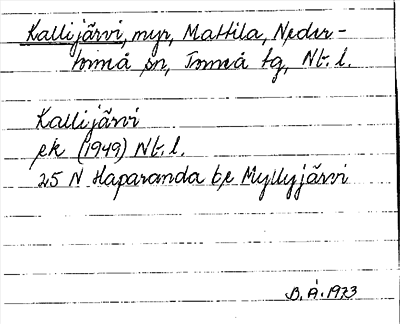 Kallijärvi, myr, Mattila, Neder-
torneå sn, Torneå tg, Nb. l.
Kallijärvi
ek (1949) Nb. l.
25 N Haparanda be Myllyjärvi
B. Å. 1973